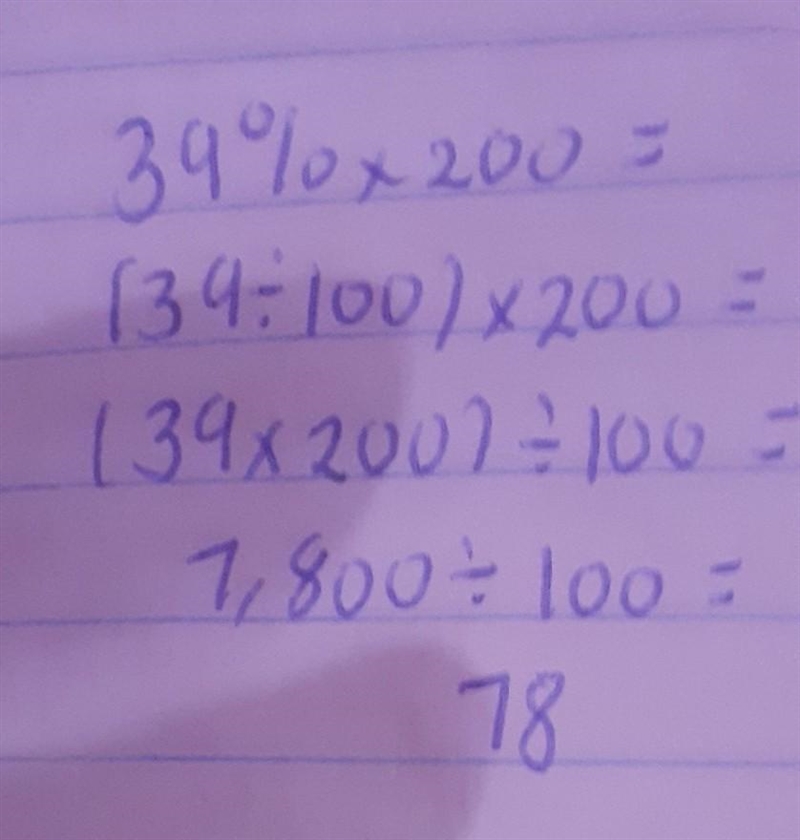 39% x 200 =
(39÷100) x 200 =
(39 x 200) ÷ 100 =
7,800 ÷ 100 =
78